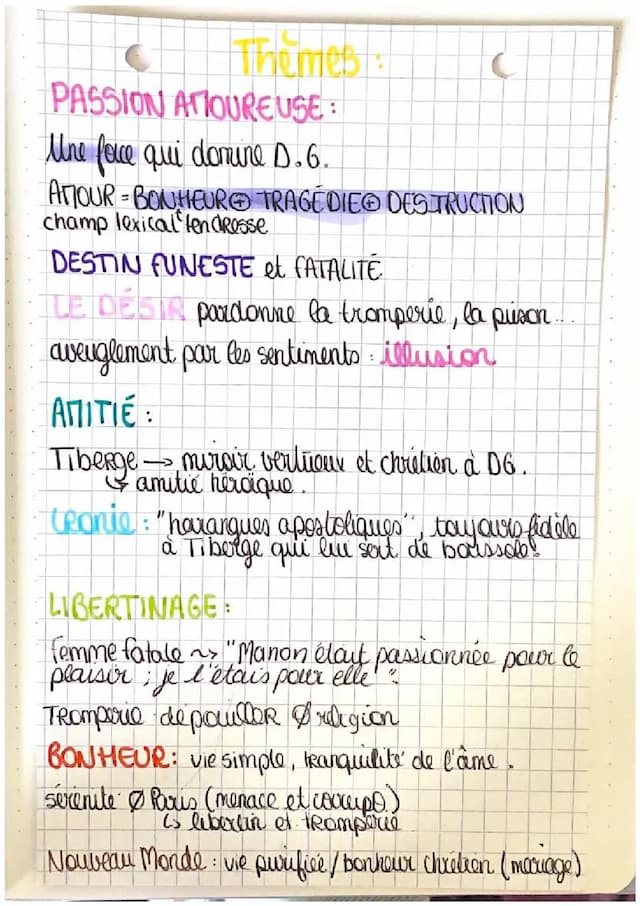 Thèmes :
PASSION AMOUREUSE :
Une force qui domine D.G.
AMOUR = BONHEUR ⊕ TRAGÉDIE ⊕ DESTRUCTION
champ lexical tendresse
DESTIN FUNESTE et FATALITÉ
LE DÉSIR pardonne la tromperie, la prison...
aveuglement par les sentiments : illusion
AMITIÉ :
Tiberge → miroir vertueux et chrétien à DG.
↳ amitié héroïque.
Ironie : "harangues apostoliques", toujours fidèle
à Tiberge qui lui sert de boussole!
LIBERTINAGE :
femme fatale ~> "Manon était passionnée pour le
plaisir ; je l'étais pour elle".
Tromperie dépouiller Ø religion
BONHEUR : vie simple, tranquilité de l'âme.
sérénité Ø Paris (menace et corrupt)
↳ libertin et tromperie
Nouveau Monde : vie purifiée / bonheur chrétien (mariage)